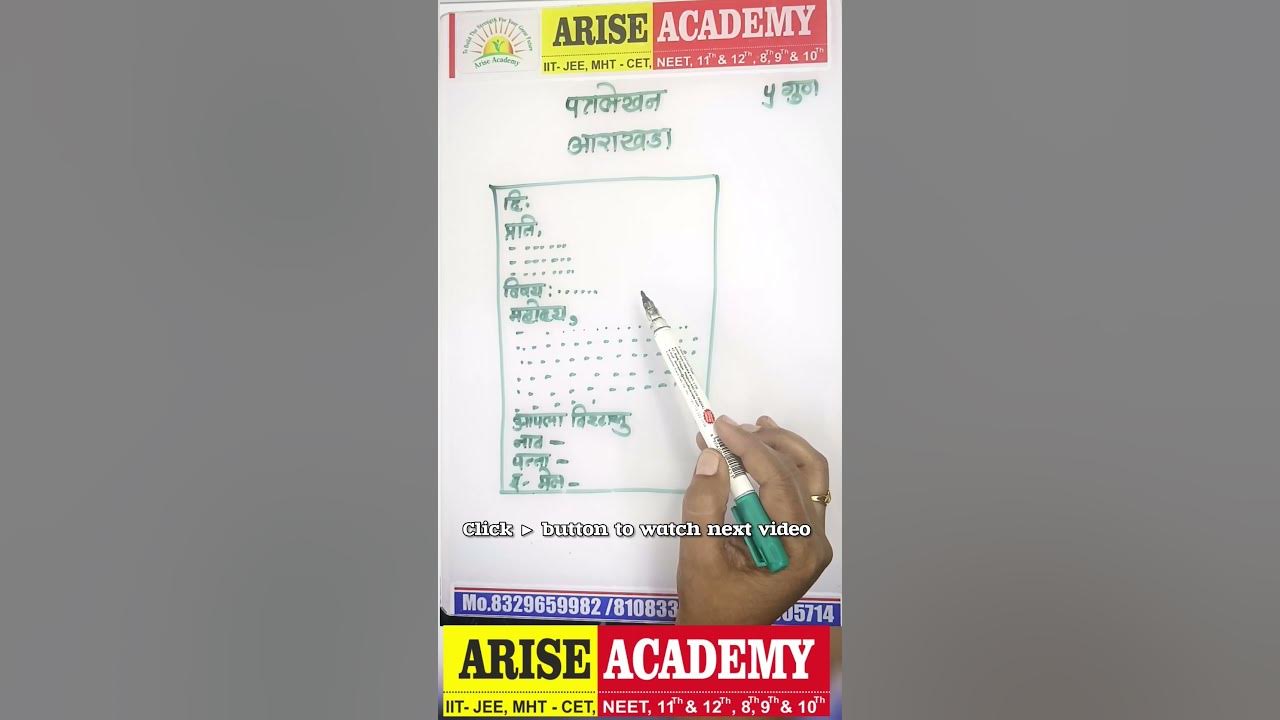 ARISE ACADEMY
To Build The Strength For Your Great Future
Arise Academy
IIT- JEE, MHT - CET, NEET, 11Th & 12Th, 8Th, 9Th & 10Th
पत्रलेखन
५ गुण
आराखडा
दि.
प्रति,
विषय : ......
महोदय,
आपला विश्वासू
नाव -
पत्ता -
ई - मेल -
Click ► button to watch next video
Mo.8329659982 /810833 05714
ARISE ACADEMY
IIT- JEE, MHT - CET, NEET, 11Th & 12Th, 8Th, 9Th & 10Th